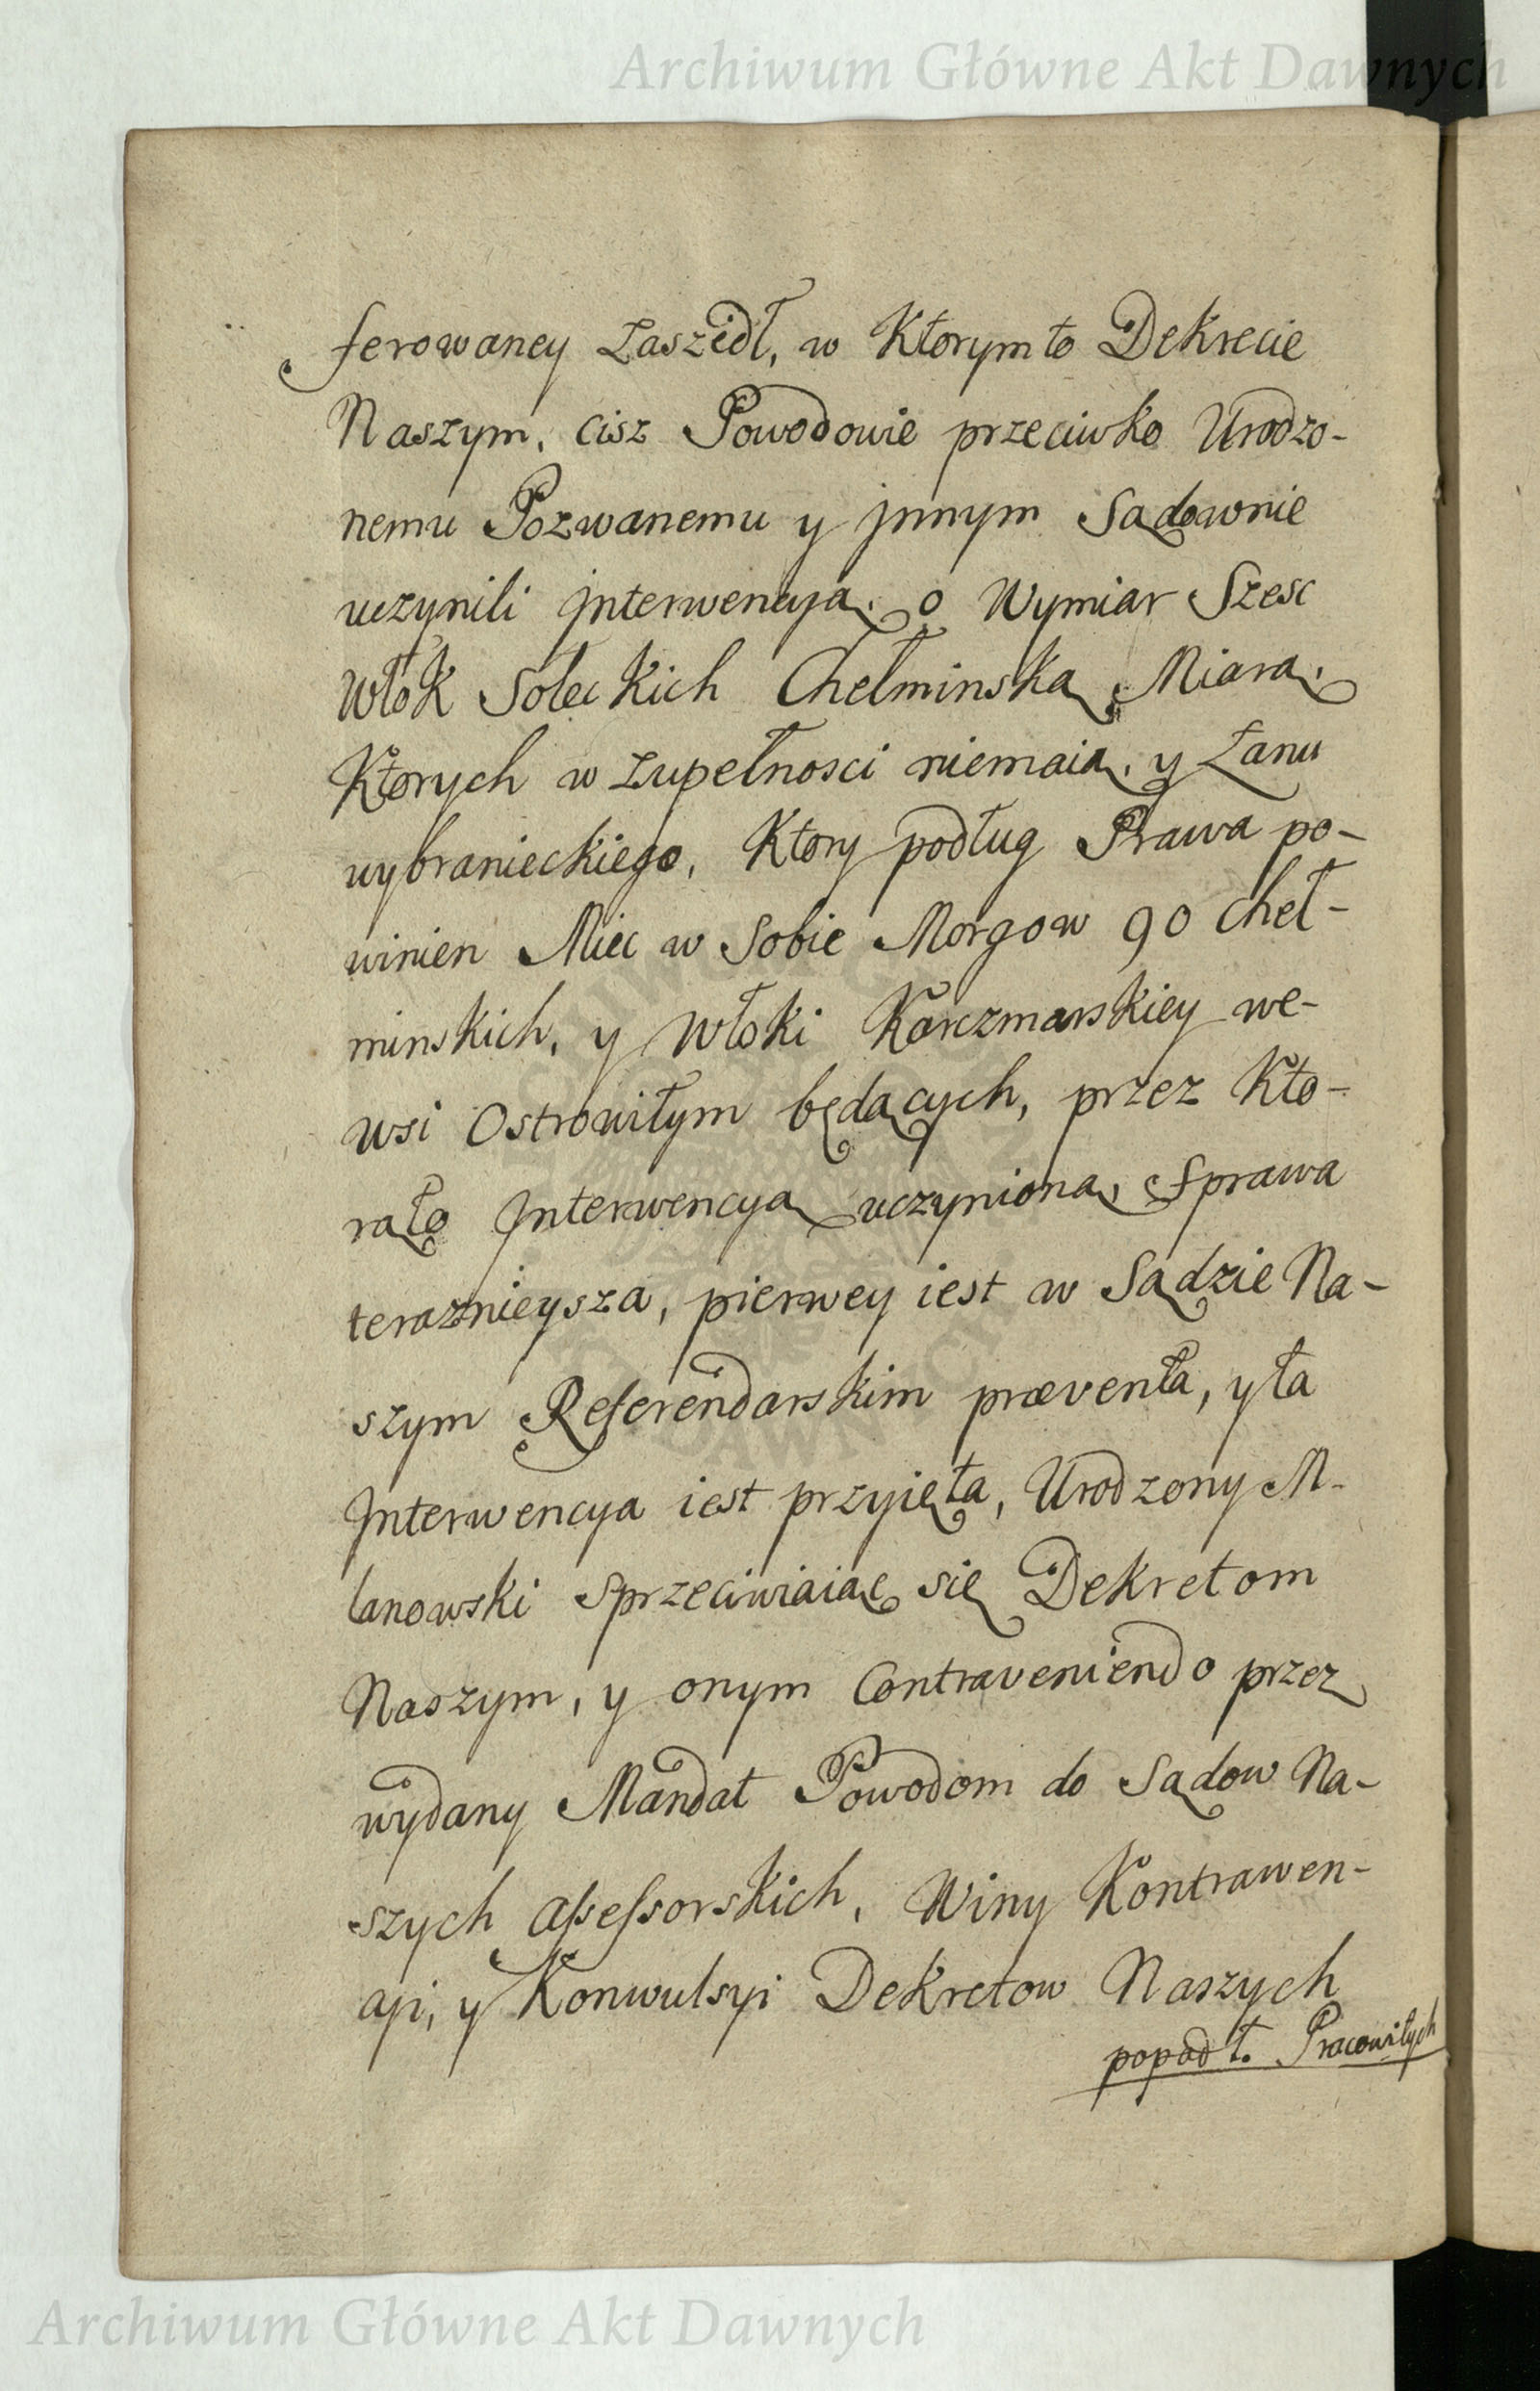 Archiwum Główne Akt Dawnych
ferowaney Zaszedł, w Ktorym to Dekrecie
Naszym, cisz Powodowie przeciwko Urodzo-
nemu Pozwanemu y jnnym Sądownie
uczynili jnterwencyą, o Wymiar Szesc
Włok Soleckich Chełminską Miarą,
Ktorych w zupełnosci niemaią, y Łanu
wybranieckiego, Ktory podług Prawa po-
winien Miec w Sobie Morgow 90 Cheł-
minskich, y Włoki Karczmarskiey we-
wsi Ostrowitym będących, przez Kto-
rąto Jnterwencyą uczynioną, Sprawa
teraznieysza, pierwey iest w Sądzie Na-
szym Referendarskim præventa, y ta
Jnterwencya iest przyięta, Urodzony M-
lanowski Sprzeciwiaiąc się Dekretom
Naszym, y onym Contraveniendo przez
wydany Mandat Powodom do Sądow Na-
szych assessorskich, Winy Kontrawen-
cyi, y Konwulsyi Dekretow Naszych
popadł. Pracowitych
Archiwum Główne Akt Dawnych